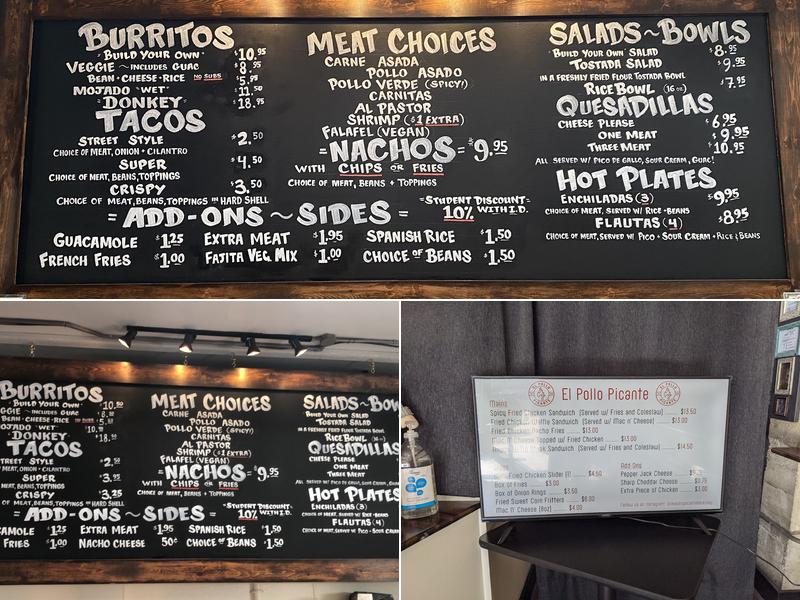 BURRITOS
"BUILD YOUR OWN" $10.95
VEGGIE ~ INCLUDES GUAC $8.95
BEAN • CHEESE • RICE NO SUBS $5.95
MOJADO "WET" $11.50
"DONKEY" $18.95
TACOS
STREET STYLE $2.50
CHOICE OF MEAT, ONION + CILANTRO
SUPER $4.50
CHOICE OF MEAT, BEANS, TOPPINGS
CRISPY $3.50
CHOICE OF MEAT, BEANS, TOPPINGS IN HARD SHELL
MEAT CHOICES
CARNE ASADA
POLLO ASADO
POLLO VERDE (SPICY!)
CARNITAS
AL PASTOR
SHRIMP ($1 EXTRA)
FALAFEL (VEGAN)
= NACHOS = $9.95
WITH CHIPS OR FRIES
CHOICE OF MEAT, BEANS + TOPPINGS
SALADS ~ BOWLS
"BUILD YOUR OWN" SALAD $8.95
TOSTADA SALAD $9.95
IN A FRESHLY FRIED FLOUR TOSTADA BOWL
RICE BOWL (16 oz) $7.95
QUESADILLAS
CHEESE PLEASE $6.95
ONE MEAT $9.95
THREE MEAT $10.95
ALL SERVED W/ PICO DE GALLO, SOUR CREAM, GUAC!
HOT PLATES
ENCHILADAS (3) $9.95
CHOICE OF MEAT, SERVED W/ RICE • BEANS
FLAUTAS (4) $8.95
CHOICE OF MEAT, SERVED W/ PICO • SOUR CREAM • RICE & BEANS
= ADD-ONS ~ SIDES =
= STUDENT DISCOUNT =
10% WITH I.D.
GUACAMOLE $1.25 EXTRA MEAT $1.95 SPANISH RICE $1.50
FRENCH FRIES $1.00 FAJITA VEG. MIX $1.00 CHOICE OF BEANS $1.50
BURRITOS
BUILD YOUR OWN $10.50
GGIE ~ INCLUDES GUAC
BEAN • CHEESE • RICE
OJADO "WET"
"DONKEY" $18.
TACOS
STREET STYLE $2.50
MEAT, ONION + CILANTRO
SUPER $3.95
MEAT, BEANS, TOPPINGS
CRISPY $3.25
OF MEAT, BEANS, TOPPINGS IN HARD SHELL
MEAT CHOICES
CARNE ASADA
POLLO ASADO
POLLO VERDE (SPICY!)
CARNITAS
AL PASTOR
SHRIMP ($1 EXTRA)
FALAFEL (VEGAN)
= NACHOS = $9.95
WITH CHIPS OR FRIES
CHOICE OF MEAT, BEANS + TOPPINGS
SALADS ~ BOW
"BUILD YOUR OWN" SALAD
TOSTADA SALAD
IN A FRESHLY FRIED FLOUR TOSTADA BOWL
RICE BOWL (16 oz)
QUESADILLAS
CHEESE PLEASE
ONE MEAT
THREE MEAT
ALL SERVED W/ PICO DE GALLO, SOUR CREAM, GUAC
HOT PLATES
ENCHILADAS (3)
CHOICE OF MEAT, SERVED W/ RICE • BEANS
FLAUTAS (4)
CHOICE OF MEAT, SERVED W/ PICO • SOUR CREAM
= ADD-ONS ~ SIDES =
= STUDENT DISCOUNT =
10% WITH I.D.
CAMOLE $1.25 EXTRA MEAT $1.95 SPANISH RICE $1.50
FRIES $1.00 NACHO CHEESE 50¢ CHOICE OF BEANS $1.50
El Pollo Picante
Mains
Spicy Fried Chicken Sandwich (Served w/ Fries and Coleslaw) $13.50
Fried Chicken Waffle Sandwich (Served w/ Mac n' Cheese) $13.00
Fried Chicken Nacho Fries $13.00
Mac n' Cheese Topped w/ Fried Chicken $13.00
Sandwich (Served w/ Fries and Coleslaw) $14.50
Fried Chicken Slider (1) $4.50
Box of Fries $3.00
Box of Onion Rings $3.50
Fried Sweet Corn Fritters $6.00
Mac n' Cheese (8oz) $4.00
Add Ons
Pepper Jack Cheese
Sharp Cheddar Cheese $0.75
Extra Piece of Chicken $3.00
Follow us on Instagram: